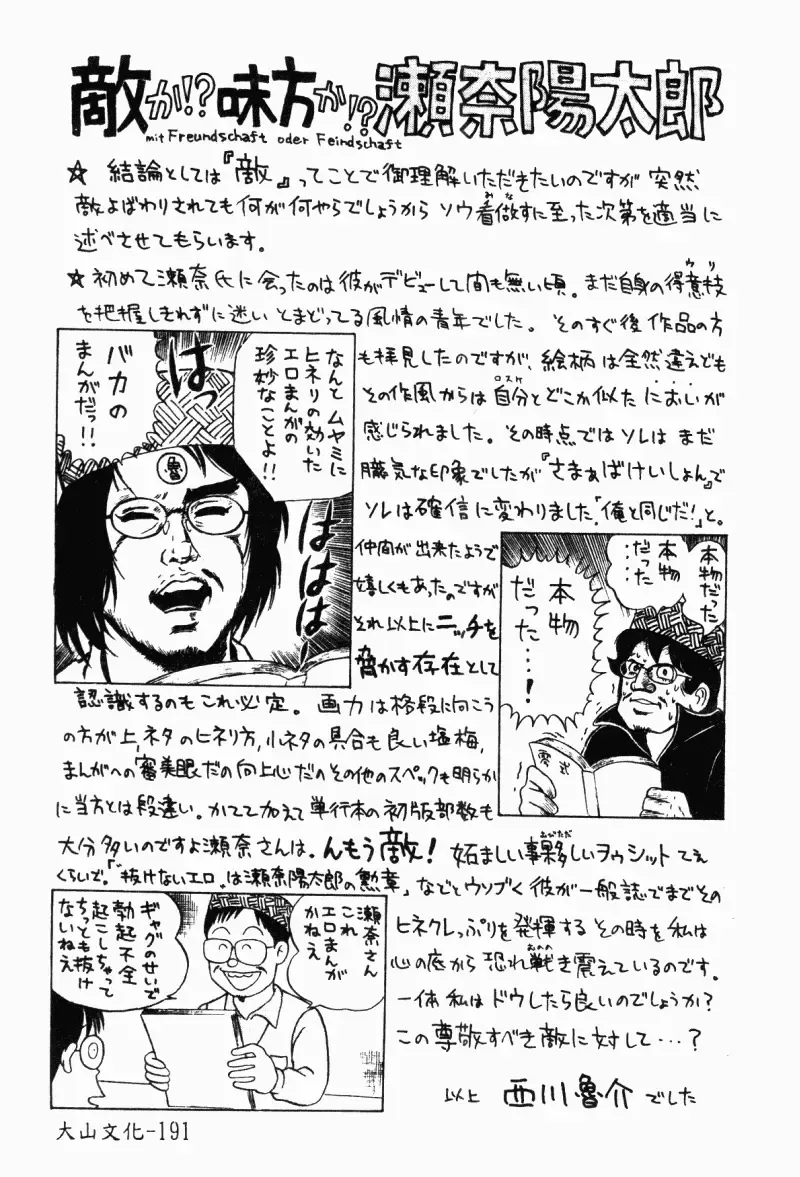 敵か!?味方か!?瀬奈陽太郎
mit Freundschaft oder Feindschaft
☆ 結論としては『敵』ってことで御理解いただきたいのですが 突然
敵よばわりされても何が何やらでしょうから ソウ看做すに至った次第を適当に
みな
述べさせてもらいます。
☆初めて瀬奈氏に会ったのは彼がデビューして間も無い頃。まだ自身の得意技
ウリ
を把握しきれずに迷い とまどってる風情の青年でした。そのすぐ後 作品の方
も拝見したのですが、絵柄は全然違えども
その作風からは自分とどこか似た においが
ロスケ
感じられました。その時点ではソレは まだ
朧気な印象でしたが『さまぁばけいしょん』で
ソレは確信に変わりました「俺と同じだ!」と。
なんと ムヤミに
ヒネリの効いた
エロまんがの
珍妙なことよ!!
はっ
ははは
バカの
まんがだっ!!
魯
仲間が出来たようで
嬉しくもあったのですが
それ以上にニッチを
脅かす存在として
本物だった
本物
だった
……
本物
だった…!
零式
認識するのもこれ必定。画力は格段に向こう
の方が上、ネタのヒネリ方、小ネタの具合も良い塩梅、
まんがへの審美眼だの向上心だのその他のスペックも明らか
に当方とは段違い。かてて加えて単行本の初版部数も
大分多いのですよ瀬奈さんは。んもう敵! 妬ましい事夥しいヲゥシット てえ
おびただ
くらいで。「"抜けないエロ"は瀬奈陽太郎の勲章」などとウソブく彼が一般誌でまでその
ヒネクレっぷりを発揮する その時を私は
心の底から 恐れ戦き震えているのです。
おのの
一体 私は ドウしたら良いのでしょうか?
この尊敬すべき敵に対して…?
瀬奈さん
これ
エロまんが
かねえ
ギャグのせいで
勃起不全
起こしちゃって
ちっとも抜け
ないねえ
以上 西川魯介 でした
大山文化-191